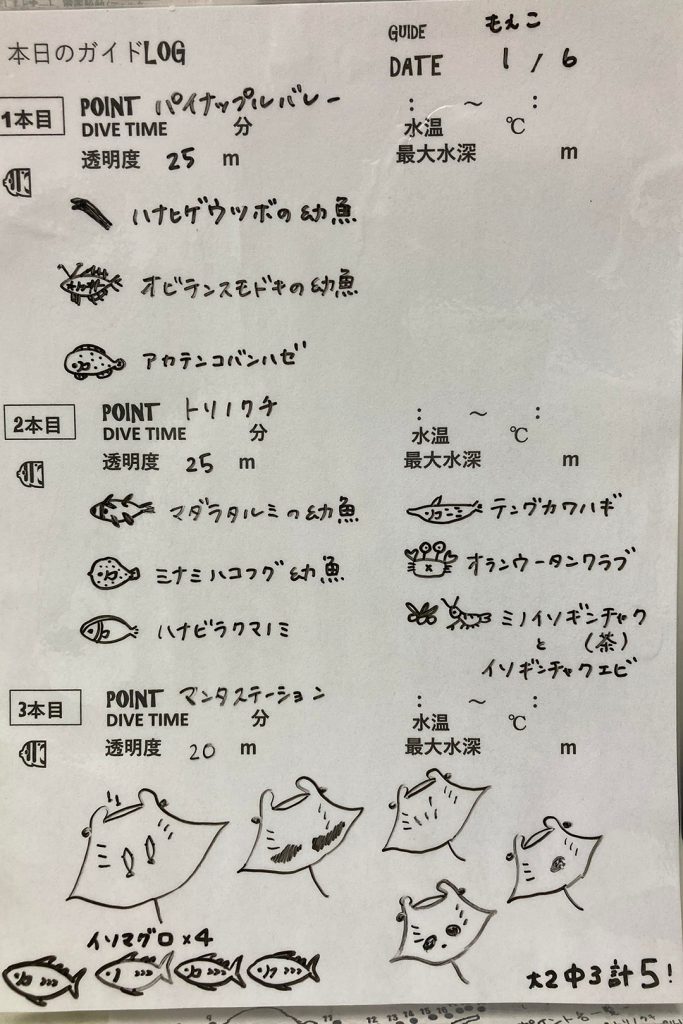 本日のガイドLOG
GUIDE もえこ
DATE 1 / 6
1本目 POINT パイナップルバレー : ～ :
DIVE TIME 分 水温 ℃
透明度 25 m 最大水深 m
ハナヒゲウツボの幼魚
オビテンスモドキの幼魚
アカテンコバンハゼ
2本目 POINT トリノクチ : ～ :
DIVE TIME 分 水温 ℃
透明度 25 m 最大水深 m
マダラタルミの幼魚
ミナミハコフグ幼魚
ハナビラクマノミ
テングカワハギ
オランウータンクラブ
ミノイソギンチャク
と (茶)
イソギンチャクエビ
3本目 POINT マンタステーション : ～ :
DIVE TIME 分 水温 ℃
透明度 20 m 最大水深 m
イソマグロ×4
大2中3計5!